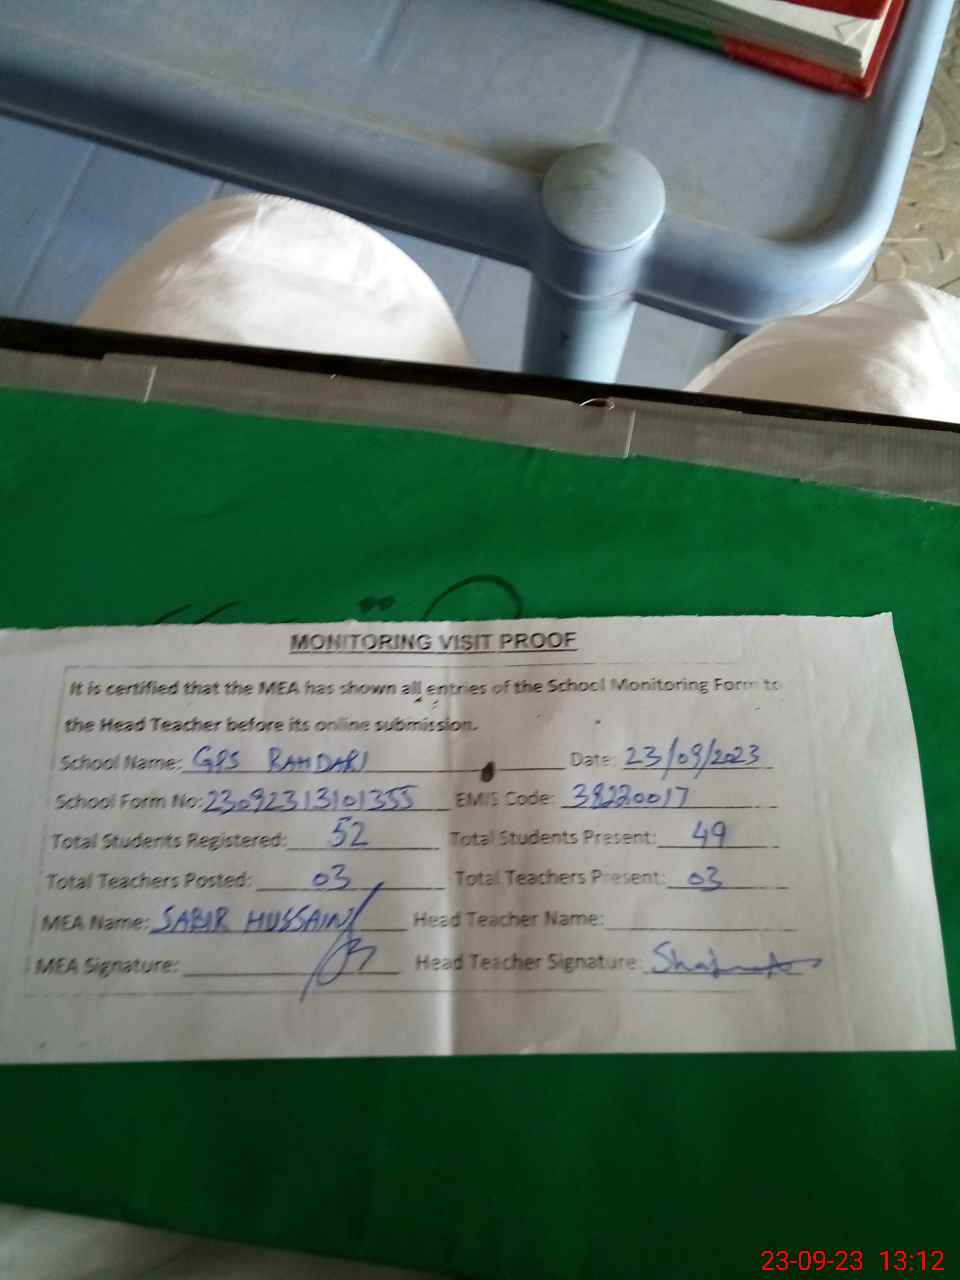 MONITORING VISIT PROOF
It is certified that the MEA has shown all entries of the School Monitoring Form to
the Head Teacher before its online submission.
School Name: GPS RAHDARI Date: 23/09/2023
School Form No: 23092313101355 EMIS Code: 38220017
Total Students Registered: 52 Total Students Present: 49
Total Teachers Posted: 03 Total Teachers Present: 03
MEA Name: SABIR HUSSAIN Head Teacher Name:
MEA Signature: Head Teacher Signature:
23-09-23 13:12